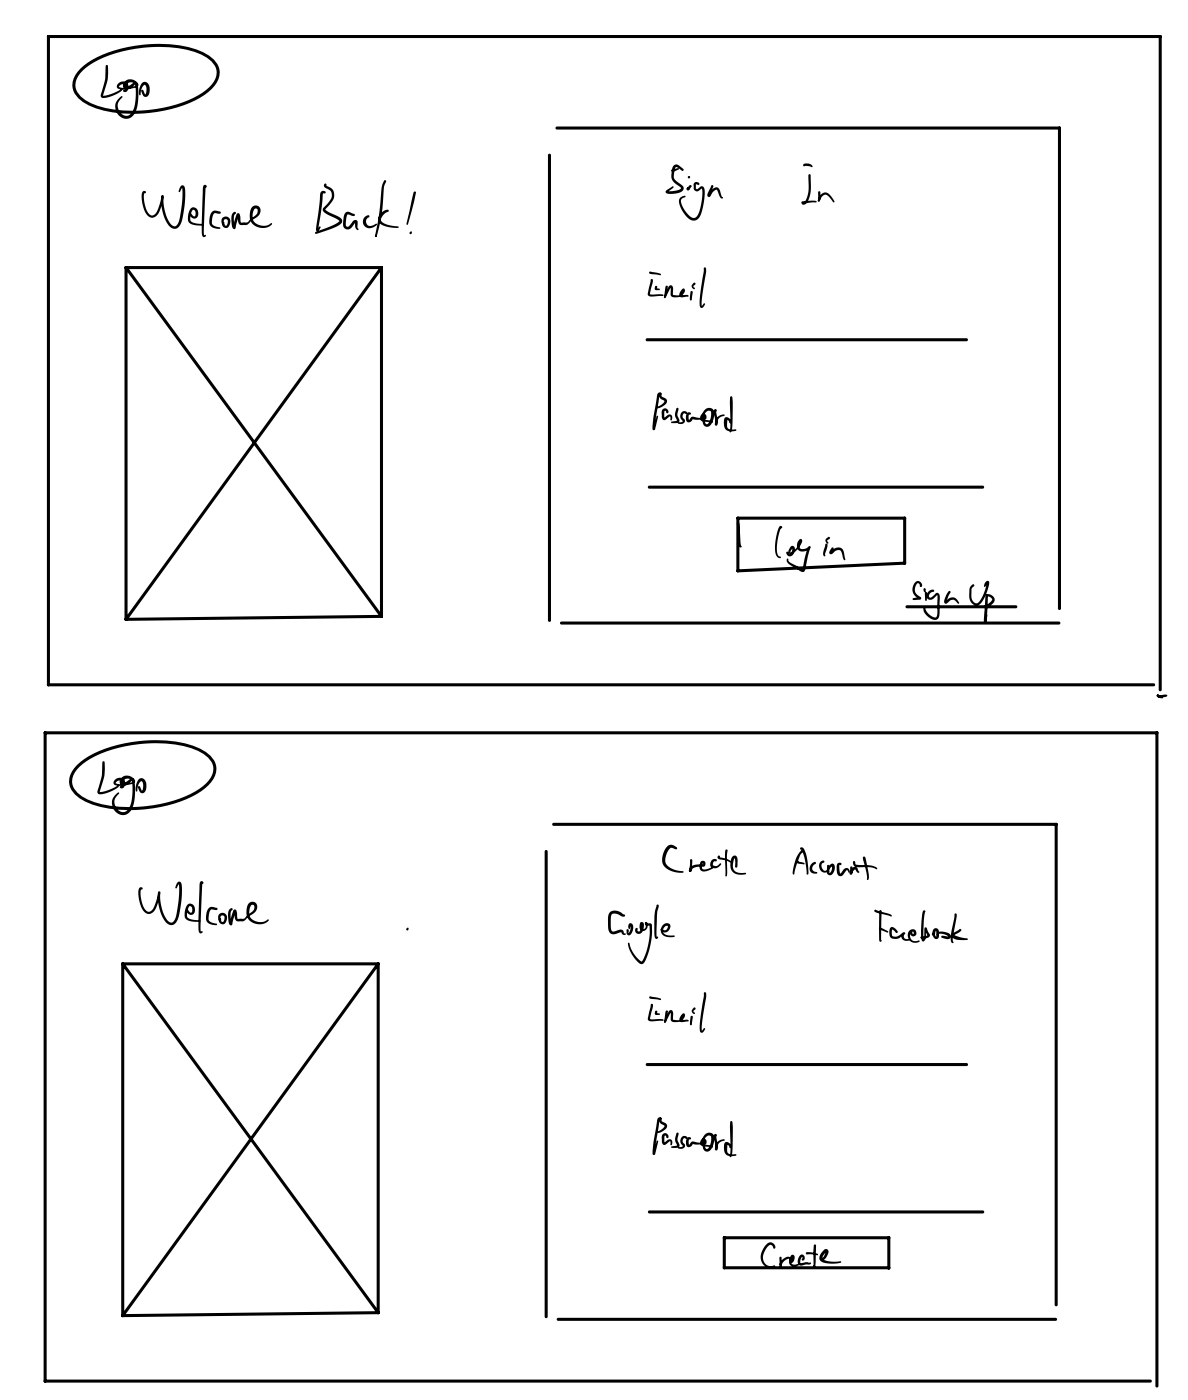 Logo
Welcome Back!
Sign In
Email
Password
Log in
Sign Up
Logo
Welcome
Create Account
Google Facebook
Email
Password
Create